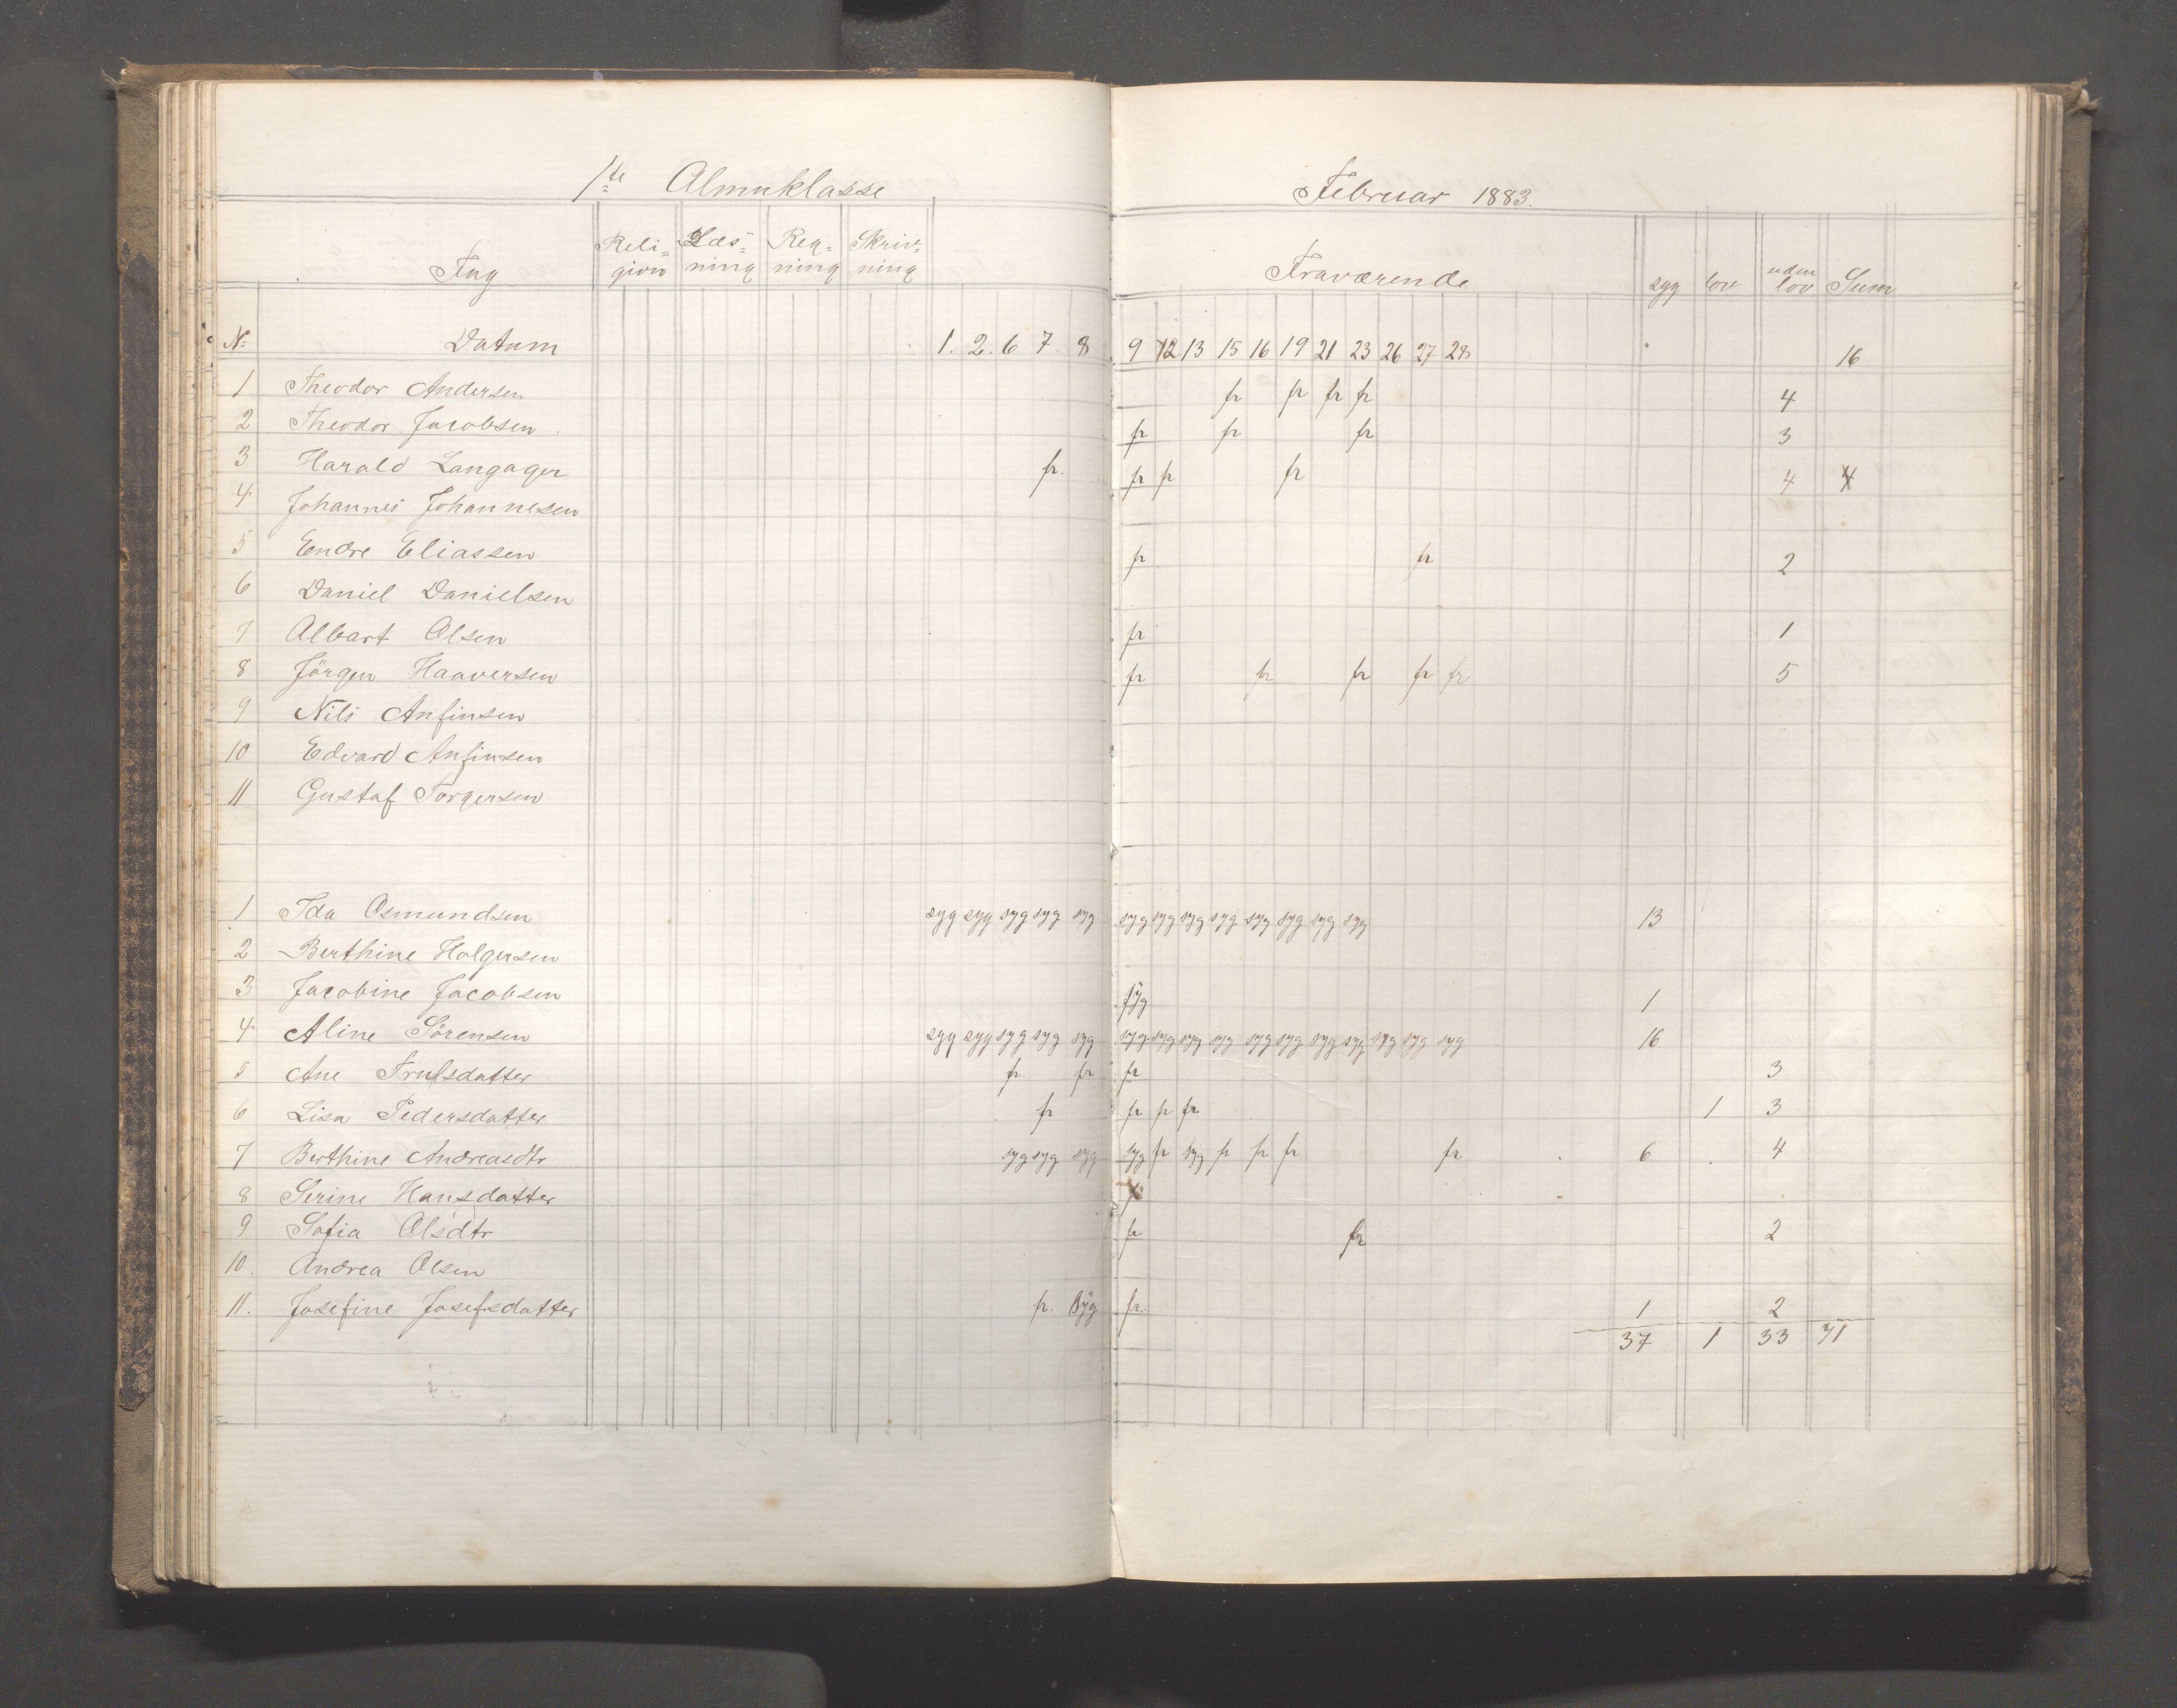 1te Almuklasse
Februar 1883.
Fag Reli= gion Læs= ning Reg= ning Skriv= ning Fraværende syg lov uden lov Sum
No Datum 1. 2. 6 7 8 9 12 13 15 16 19 21 23 26 27 28 16
1 Theodor Andersen fr fr fr fr 4
2 Theodor Jacobsen fr fr fr 3
3 Harald Langager fr. fr fr fr 4 4
4 Johannes Johannesen
5 Endre Eliassen fr fr 2
6 Daniel Danielsen
7 Albart Olsen fr 1
8 Jörgen Haaversen fr fr fr fr fr 5
9 Nils Anfinsen
10 Edvard Anfinsen
11 Gustaf Torgersen
1 Ida Osmundsen syg syg syg syg syg syg syg syg syg syg syg syg syg 13
2 Berthine Holgersen
3 Jacobine Jacobsen syg 1
4 Aline Sörensen syg syg syg syg syg syg syg syg syg syg syg syg syg syg syg syg 16
5 Ane Trulsdatter fr fr fr 3
6 Lisa Pedersdatter fr fr fr fr 1 3
7 Berthine Andreasdtr syg syg syg syg fr syg fr fr fr fr 6 4
8 Serine Hansdatter
9 Sofia Olsdtr fr fr 2
10. Andrea Olsen
11. Josefine Josefsdatter fr. Syg fr. 1 2
37 1 33 71